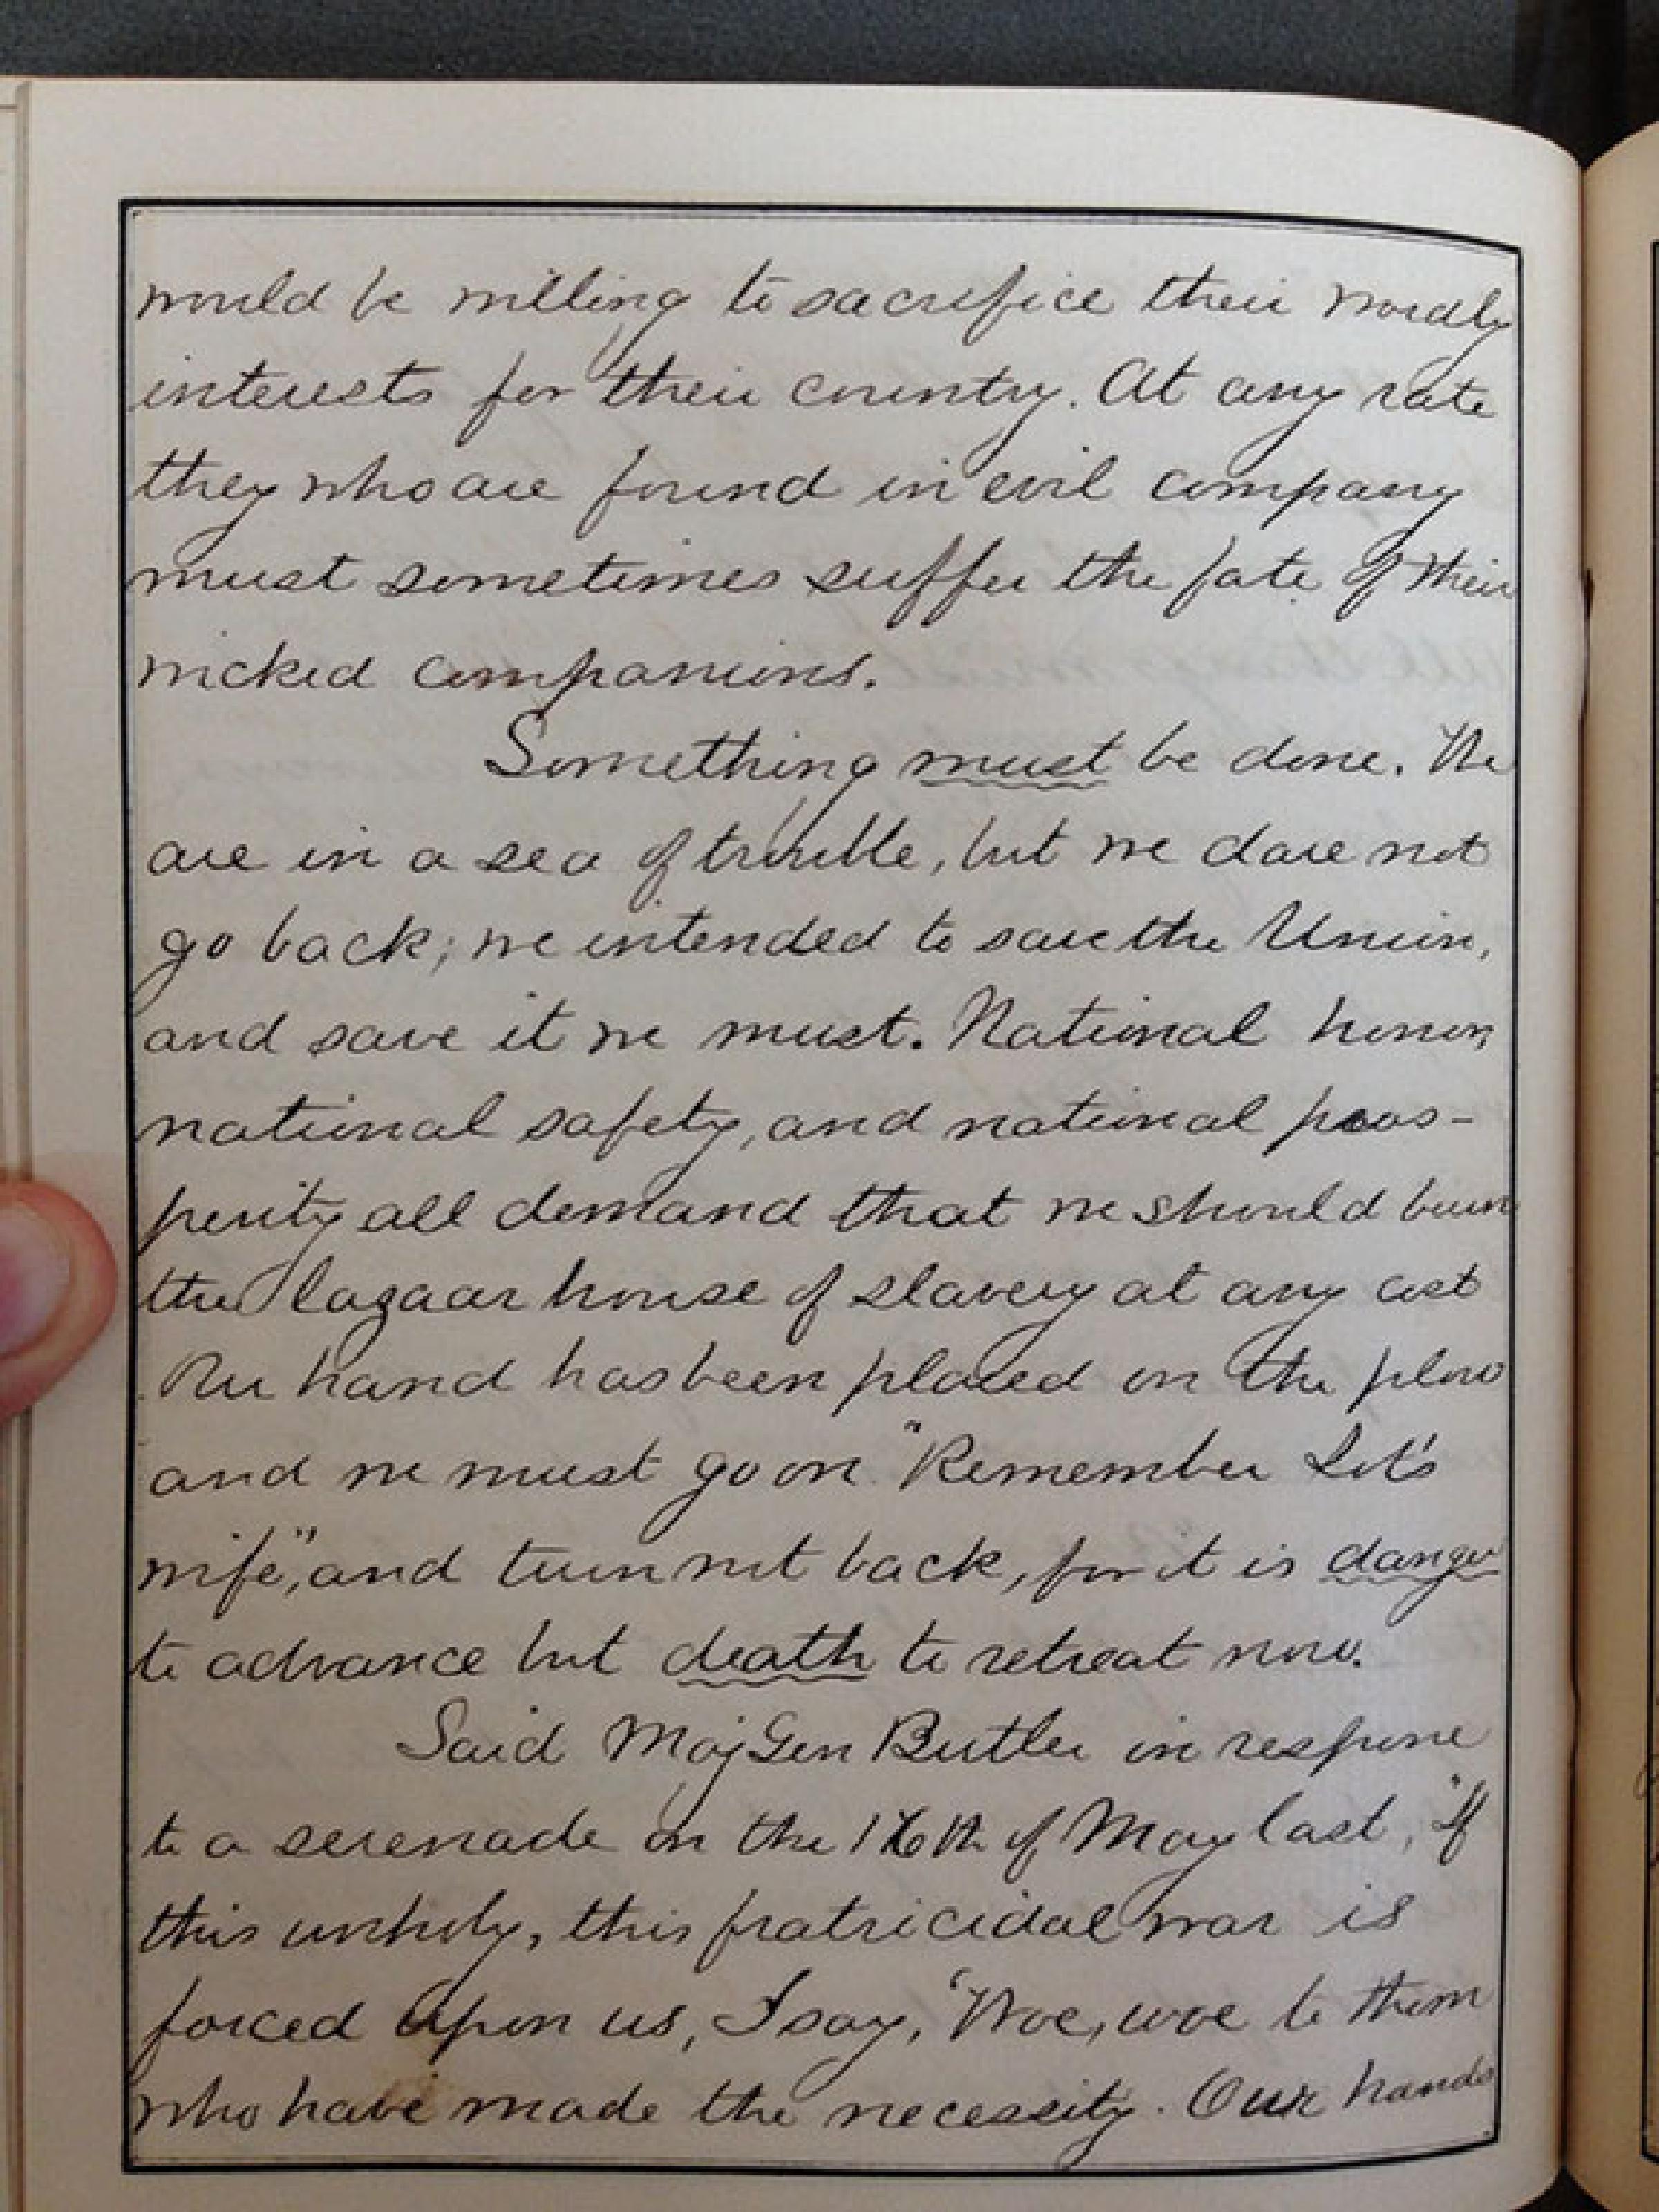 would be willing to sacrifice their wordly
interests for their country. At any rate
they who are found in evil company
must sometimes suffer the fate of their
wicked companions.
Something must be done. We
are in a sea of trouble, but we dare not
go back; we intended to save the Union,
and save it we must. National honor,
national safety, and national pros-
perity all demand that we should burn
the lazaar house of slavery at any cost
Our hand has been placed on the plow
and we must go on. "Remember Lot's
wife", and turn not back, for it is danger
to advance but death to retreat now.
Said Maj Gen Butler in respone
to a serenade on the 16th of May last, "If
this unholy, this fratricidal war is
forced upon us, I say, 'Woe, woe to them
who have made the necessity. Our hands